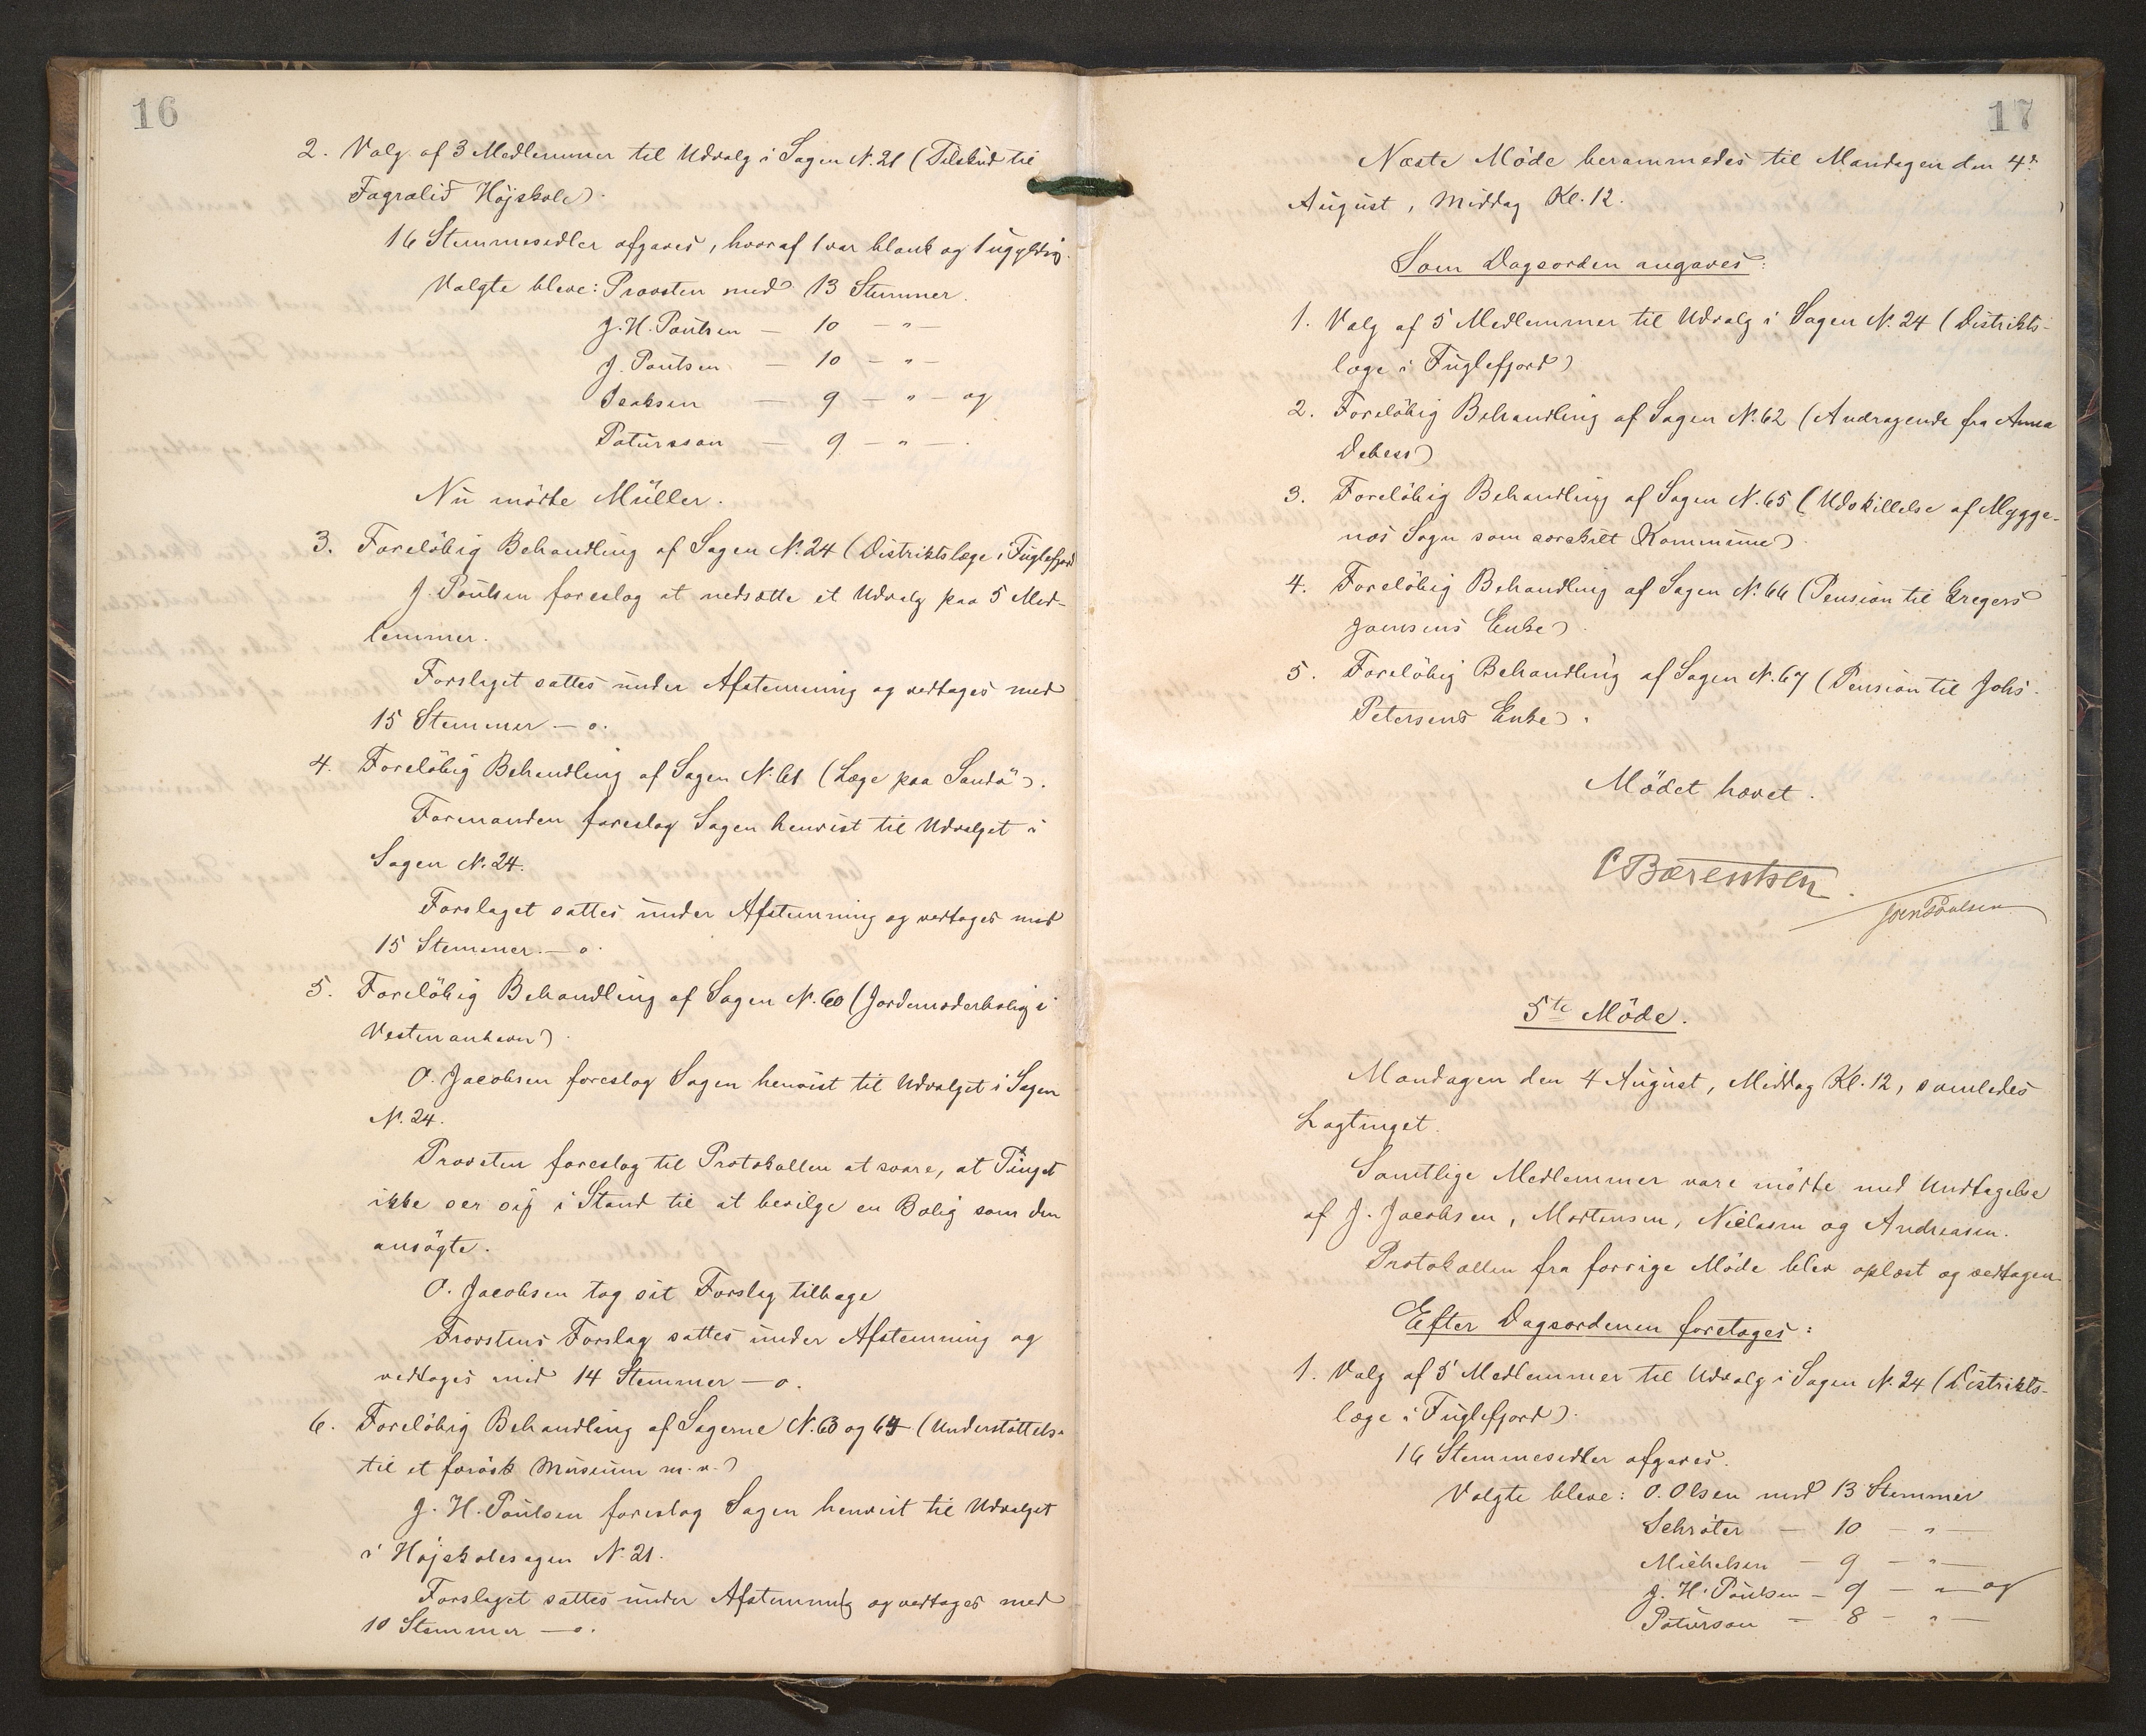 16
2. Valg af 3 Medlemmer til Udvalg i Sagen N. 21 (Tilskud til
Fagralid Højskole).
16 Stemmesedler afgaves, hvoraf 1 var blank og 1 ugyldig.
Valgte bleve: Provsten med 13 Stemmer.
J. H. Poulsen — 10 — " —
J. Poulsen — 10 — " —
Isaksen — 9 — " — og
Patursson — 9 — " — .
Nu mödte Müller.
3. Foreløbig Behandling af Sagen N. 24 (Distriktslæge i Fuglefjord
J. Poulsen foreslog at nedsætte et Udvalg paa 5 Med-
lemmer.
Forslaget sattes under Afstemning og vedtoges med
15 Stemmer — o.
4. Foreløbig Behandling af Sagen N. 61 (Læge paa Sandö).
Formanden foreslog Sagen henvist til Udvalget i
Sagen N. 24.
Forslaget sattes under Afstemning og vedtoges med
15 Stemmer. — o.
5. Foreløbig Behandling af Sagen N. 60 (Jordemoderbolig i
Vestmanhavn).
O. Jacobsen foreslog Sagen henvist til Udvalget i Sagen
N. 24.
Provsten foreslog til Protokollen at svare, at Tinget
ikke ser sig i Stand til at bevilge en Bolig som den
ansögte.
O. Jacobsen tog sit Forslag tilbage
Provstens Forslag sattes under Afstemning og
vedtoges med 14 Stemmer — o.
6. Foreløbig Behandling af Sagerne N. 63 og 64 (Understöttelse
til et færösk Museum m. v.)
J. H. Poulsen foreslog Sagen henvist til Udvalget
i Højskolesagen N. 21.
Forslaget sattes under Afstemning og vedtoges med
10 Stemmer — o.
17
Næste Möde berammedes til Mandagen den 4de
August, Middag Kl. 12.
Som Dagsorden angaves:
1. Valg af 5 Medlemmer til Udvalg i Sagen N. 24 (Distrikts-
læge i Fuglefjord)
2. Foreløbig Behandling af Sagen N. 62 (Andragende fra Anna
Debess)
3. Foreløbig Behandling af Sagen N. 65 (Udskillelse af Mygge-
næs Sogn som særskilt Kommune)
4. Foreløbig Behandling af Sagen N. 66 (Pension til Gregers
Joensens Enke).
5. Foreløbig Behandling af Sagen N. 67 (Pension til Johs.
Petersens Enke).
Mödet hævet.
C Bærentsen.
Joen Poulsen
5te Möde.
Mandagen den 4 August, Middag Kl. 12, samledes
Lagtinget.
Samtlige Medlemmer vare mödte med Undtagelse
af J. Jacobsen, Mortensen, Nielsen og Andreasen.
Protokollen fra forrige Möde blev oplæst og vedtagen.
Efter Dagsordenen foretoges:
1. Valg af 5 Medlemmer til Udvalg i Sagen N. 24 (Distrikts-
læge i Fuglefjord).
16 Stemmesedler afgaves.
Valgte bleve: O. Olsen med 13 Stemmer
Schröter — 10 — " —
Michelsen — 9 — " —
J. H. Poulsen — 9 — " — og
Patursson — 8 — " —